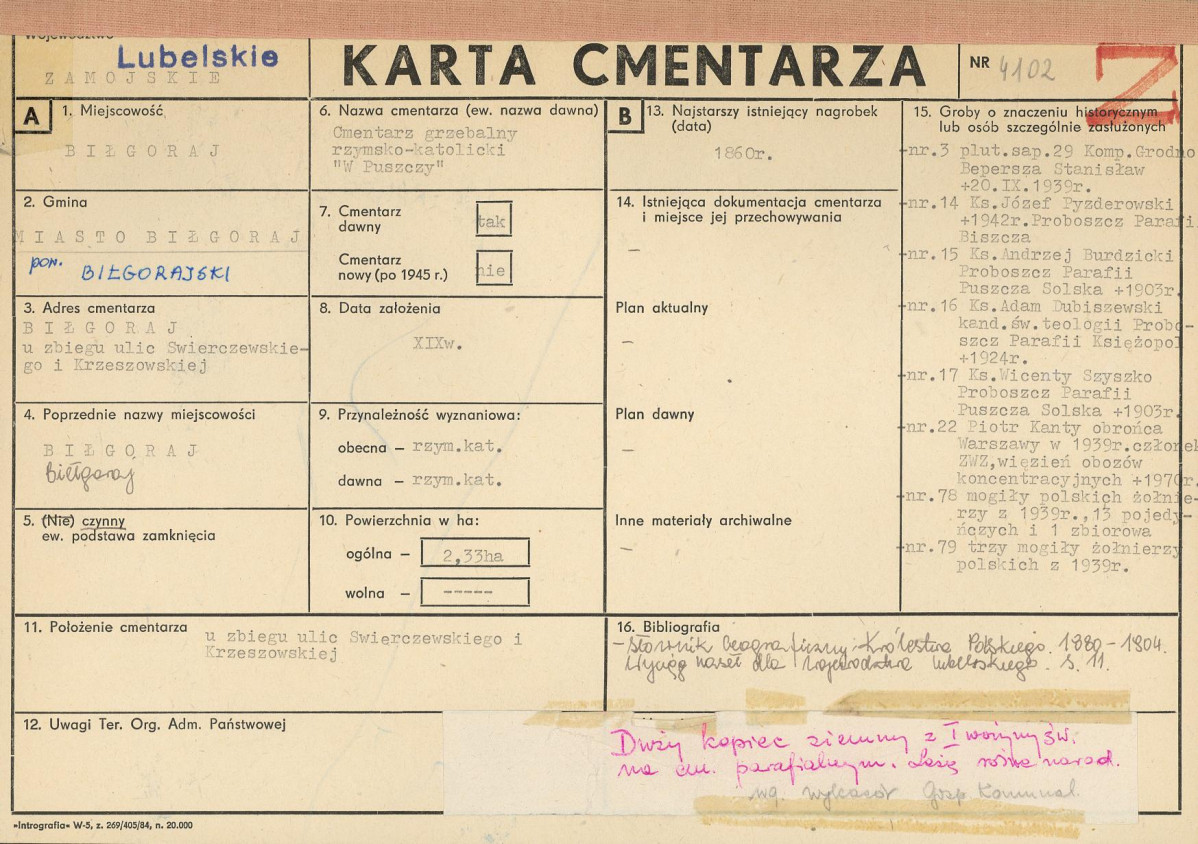 Województwo
Lubelskie
ZAMOJSKIE
KARTA CMENTARZA
NR 4102
A
1. Miejscowość
BIŁGORAJ
2. Gmina
MIASTO BIŁGORAJ
pow. BIŁGORAJSKI
3. Adres cmentarza
BIŁGORAJ
u zbiegu ulic Swierczewskie-
go i Krzeszowskiej
4. Poprzednie nazwy miejscowości
BIŁGORAJ
Biełgoraj
5. (Nie) czynny
ew. podstawa zamknięcia
6. Nazwa cmentarza (ew. nazwa dawna)
Cmentarz grzebalny
rzymsko-katolicki
"W Puszczy"
7. Cmentarz
dawny
tak
Cmentarz
nowy (po 1945 r.)
nie
8. Data założenia
XIXw.
9. Przynależność wyznaniowa:
obecna – rzym.kat.
dawna – rzym.kat.
10. Powierzchnia w ha:
ogólna – 2,33ha
wolna – -----
B
13. Najstarszy istniejący nagrobek
(data)
1860r.
14. Istniejąca dokumentacja cmentarza
i miejsce jej przechowywania
–
Plan aktualny
–
Plan dawny
–
Inne materiały archiwalne
–
15. Groby o znaczeniu historycznym
lub osób szczególnie zasłużonych
-nr.3 plut.sap.29 Komp.Grodno
Bepersza Stanisław
+20.IX.1939r.
-nr.14 Ks.Józef Pyzderowski
+1942r.Proboszcz Parafii
Biszcza
-nr.15 Ks.Andrzej Burdzicki
Proboszcz Parafii
Puszcza Solska +1903r.
-nr.16 Ks.Adam Dubiszewski
kand.św.teologii Probo-
szcz Parafii Księżopol
+1924r.
-nr.17 Ks.Wicenty Szyszko
Proboszcz Parafii
Puszcza Solska +1903r.
-nr.22 Piotr Kanty obrońca
Warszawy w 1939r.członek
ZWZ,więzień obozów
koncentracyjnych +1970r.
-nr.78 mogiły polskich żołnie-
rzy z 1939r.,13 pojedy-
ńczych i 1 zbiorowa
-nr.79 trzy mogiły żołnierzy
polskich z 1939r.
11. Położenie cmentarza
u zbiegu ulic Swięrczewskiego i
Krzeszowskiej
16. Bibliografia
- Słownik Geograficzny Królestwa Polskiego. 1880 - 1804.
Wyciąg haseł dla województwa lubelskiego. S. 11.
12. Uwagi Ter. Org. Adm. Państwowej
Duży kopiec ziemny z I wojny św.
na cm. parafialnym. Leżą różne narod.
wg. wykazów Gosp. Komunal.
»Intrografia« W-5, z. 269/405/84, n. 20.000